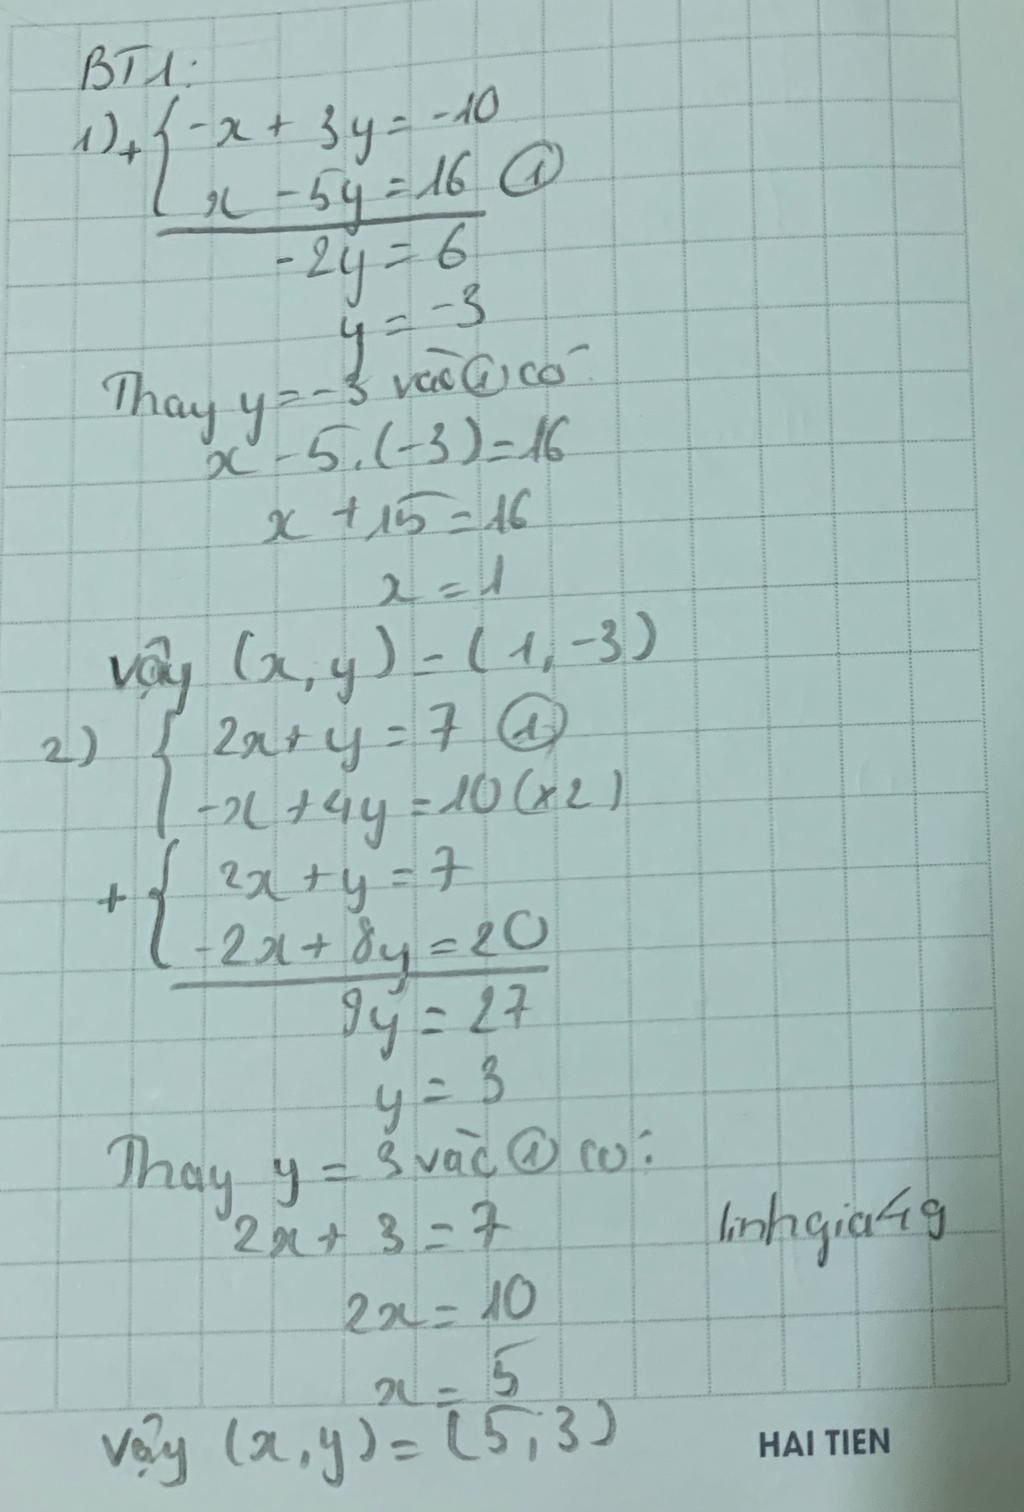 BT1:
1) + { -x + 3y = -10
x - 5y = 16 ①
-2y = 6
y = -3
Thay y = -3 vào ① có:
x - 5.(-3) = 16
x + 15 = 16
x = 1
Vậy (x, y) = (1, -3)
2) { 2x + y = 7 ①
-x + 4y = 10 (x2)
+ { 2x + y = 7
-2x + 8y = 20
9y = 27
y = 3
Thay y = 3 vào ① có:
2x + 3 = 7
linhgia49
2x = 10
x = 5
Vậy (x, y) = (5; 3)
HAI TIEN